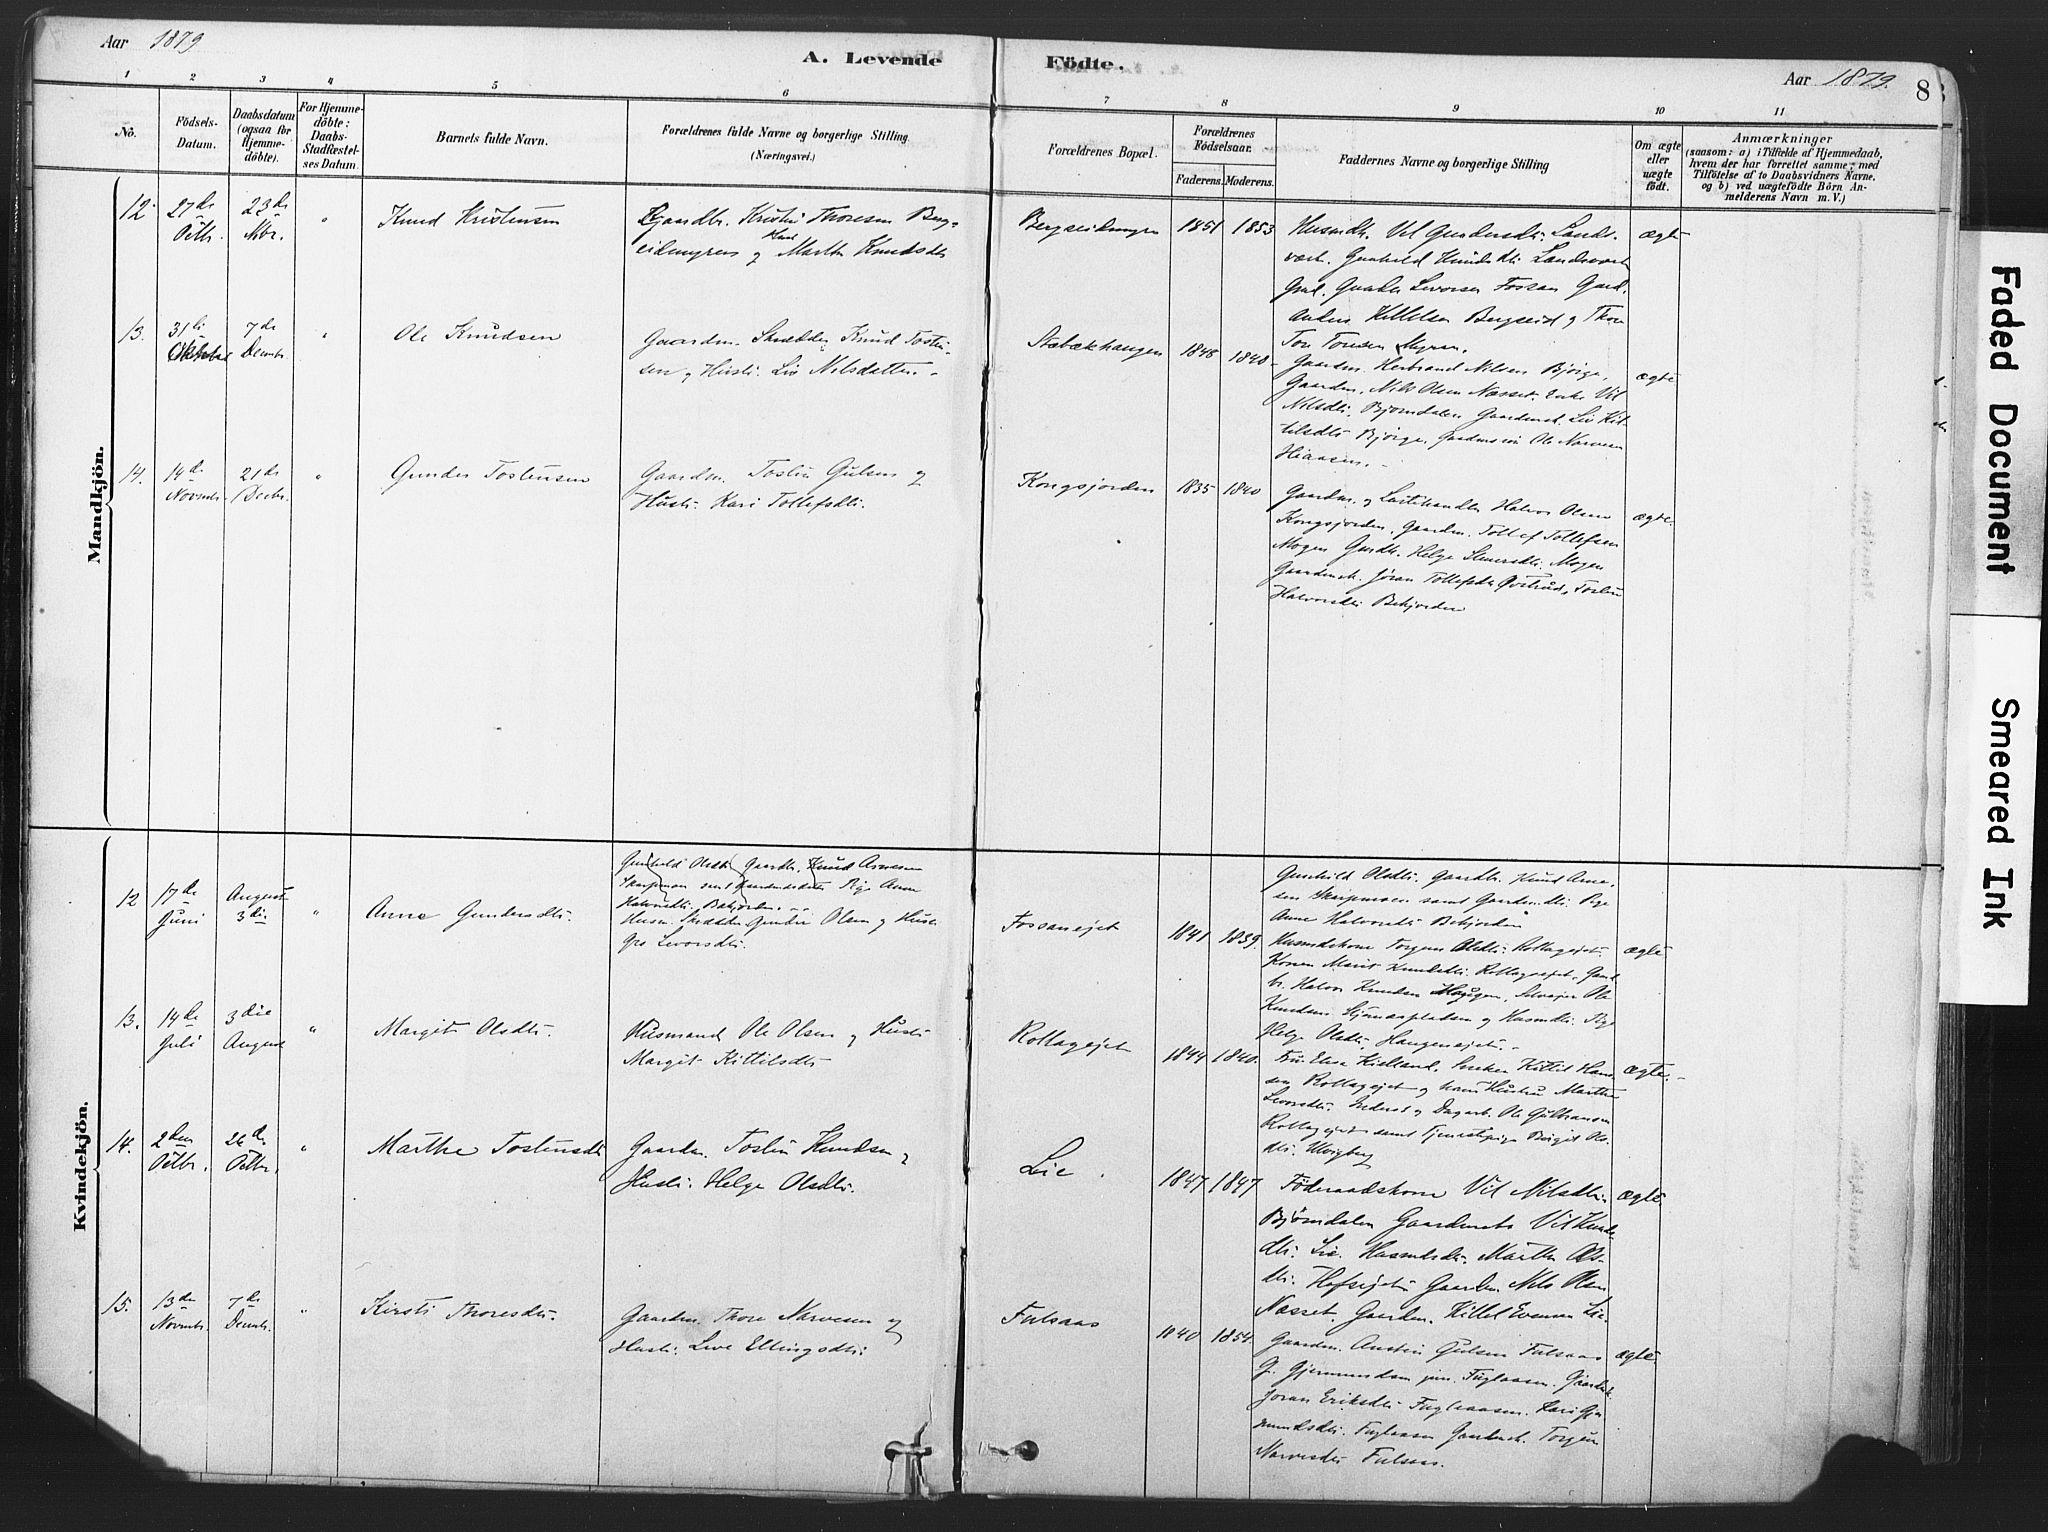 Aar 1879
A. Levende Födte.
Aar 1879.
8
1 2 3 4 5 6 7 8 9 10 11
No.
Födsels-
Datum.
Daabsdatum
(ogsaa for
Hjemme-
döbte).
For Hjemme-
döbte:
Daabs-
Stadfæstel-
ses Datum.
Barnets fulde Navn.
Forældrenes fulde Navne og borgerlige Stilling
(Næringsvei.)
Forældrenes Bopæl.
Forældrenes
Födselsaar.
Faderens. Moderens.
Faddernes Navne og borgerlige Stilling
Om ægte
eller
uægte
födt.
Anmærkninger
(saasom: a) i Tilfælde af Hjemmedaab,
hvem der har forrettet samme, med
Tilföielse af to Daabsvidners Navne,
og b) ved uægtefödte Börn An-
melderens Navn m. V.)
Mandkjön.
12. 27de Octbr. 23de Nbr. "
Knud Kristensen
Gaardbr. Kristen Thoresen Berg-
eidmyren og Hust Marthe Knudsdtr
1851 1853
Husmdtr. Vil Gundersdtr. Lands-
verk. Gunhild Knudsdtr Landsverk
Gunder Levorsen Fossan
Kittelsen Bergseid og Thore
ægte
13. 31te Oktober 7de Decembr. "
Ole Knudsen
Gaardm. Skrædder Knud Tosten-
sen og Hustr. Liv Nilsdatter.
Stabækhaugen 1848 1840.
Tor Toresen Myran.
Gaardm. Herbrand Nilsen Bjørge,
Gaardm. Nils Olsen Næsset. Enke Vil
Nilsdtr. Bjørndalen Gaardmsk. Liv Kit-
tilsdtr Bjørge, Ole Narvesen
ægte
14. 14de Novembr. 21de Decbr. "
Gunder Tostensen
Gaardm. Tosten Gulsen og
Hustr. Kari Tollefsdtr.
Kongsjorden 1835 1840
Gaardm. og Halvor Olsen
Kongsjorden. Gaardm. Tollef Tollefsen
Mogen Helge Mogen
Gaardmsk. Jøran Tollefsdtr Tosten
Halvorsdtr Bekjorden
ægte.
Kvindekjön.
12 17de Juni August 3die "
Anne Gundersdtr.
Gunhild Olsdtr Gaardbr. Knud Arnesen
Skarpmoen samt Gaardmdatter Pige Anne
Halvorsdtr. Bekjorden.
Husm. Skrædder Gunder Olsen og Hustr
Gro Levorsdtr.
Fossanejet 1841 1839.
Gunhild Olsdtr. Gaardbr. Knud Arne-
sen Skarpmoen samt Gaardmdtr. Pige
Anne Halvorsdtr Bekjorden
ægte
Husmdskone Torgun Olsdtr. Rollagejet.
Konen Marit Knudsdtr. Rollagsejet, Gaard-
br. Halvor Knudsen Haugen, Selvejer Ole
Knudsen og Husmdtr. Pige
Helge Olsdtr. Haugenejet.
13. 14de Juli 3die August "
Margit Olsdtr.
Husmand Ole Olsen og Hustr
Margit Kittilsdtr
Rollagejet 1844 1840.
Fru Elise Kielland, Snekker Kittil Han-
sen Rollagejet og hans Hustru Marthe
Levorsdtr. Inderst og Dagarb. Ole Gulbransen
Rollagejet samt Tjenestepige Birgit Ols-
dtr.
ægte.
14. 2den Octbr. 26de Octbr. "
Marthe Tostensdtr
Gaardm. Tosten Knudsen og
Hustr. Helge Olsdtr.
Lie. 1847 1847
Føderaadskone Vil Nilsdtr.
Bjørndalen Gaardmsdtr Vil Knuds-
dtr. Lie. Husmdsdtr. Marthe Ols-
dtr. Hofsejet Gaardm Nils Olsen
Næsset. Gaardm. Kittel Evensen Lie.
ægte.
15. 13de Novembr. 7de Decmbr. "
Kirsti Thoresdtr.
Gaardm. Thore Narvesen og
Hustr. Live Ellingsdtr.
Fulsaas 1840 1854.
Gaardm. Austen Gulsen Fulsaas
G. Gjermundsen jun. Fuglaasen. Gaardmk.
Joran Eriksdtr Fuglaasen. Kari Gjer-
mundsdtr. Fuglaasen Gaardmsk. Torgun
Narvesdtr Fulsaas.
ægte.
Faded Document
Smeared Ink